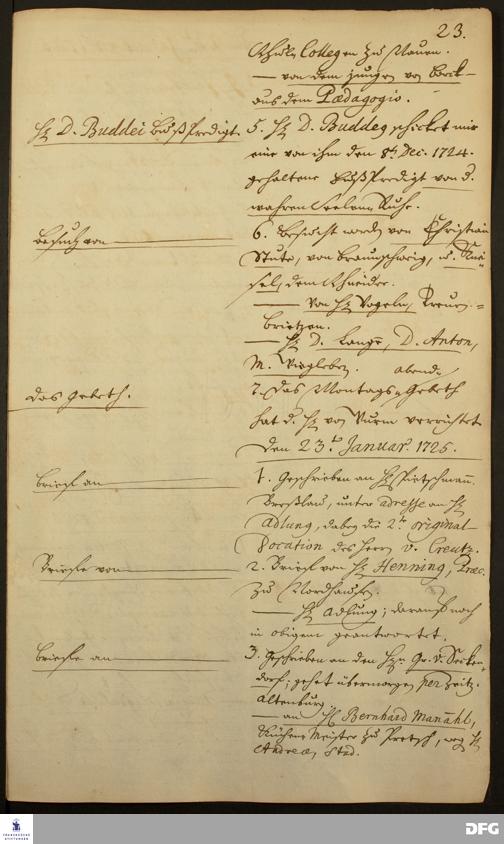 23.
Schul-Collegen zu Nauen.
— von dem jungen von
aus dem Pædagogio.
H. D. Buddei Bußpredigt.
5. H. D. Buddeg schicket mir
eine von ihm den 8t. Dec. 1724.
gehaltene Bußpredigt von d.
wahren Seelen Ruhe.
Besuch von
6. Besucht worden von Christian
Stute, von Braunschweig, u.
dem Schneider.
— von H. Vogeln,
brietzen.
— H. D. Lange, D. Anton,
M. Wiegleben. abend.
das Gebeth.
7. Das Montags-Gebeth
hat d. H. von Wurm verrichtet
Den 23.t Januar. 1725.
Brief an
1. Geschrieben an H. Pietschmann.
Breßlau, unter adresse an H.
Adlung, dabey die 2te original
Vocation des Herrn v. Creutz.
Briefe von
2. Brief von H. Henning,
zu Nordhausen.
— H. Adlung; darauf noch
in obigem geantwortet.
Briefe an
3. Geschrieben an den H. Gr. v. Secken-
dorf; gehet übermorgen per
Altenburg.
— an H. Bernhard Manahl,
Küchen Meister zu Pretsch, weg. H.
Andreæ,
FRANCKESCHE STIFTUNGEN
DFG